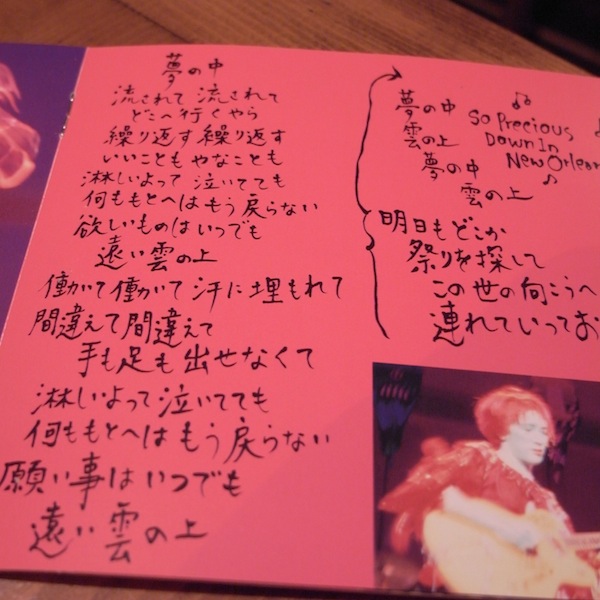 夢の中
流されて 流されて
どこへ行くやら
繰り返す繰り返す
いいことも やなことも
淋しいよって 泣いてても
何ももとへはもう戻らない
欲しいものはいつでも
遠い雲の上
働いて働いて 汗に埋もれて
間違えて間違えて
手も足も出せなくて
淋しいよって泣いてても
何ももとへはもう戻らない
願い事はいつでも
遠い雲の上
夢の中
雲の上
夢の中
雲の上
So Precious
Down In
New Orlean
明日もどこか
祭りを探して
この世の向こうへ
連れていってお